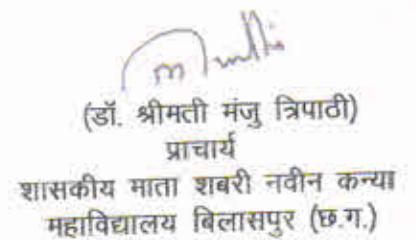 (डॉ. श्रीमती मंजु त्रिपाठी)
प्राचार्य
शासकीय माता शबरी नवीन कन्या
महाविद्यालय बिलासपुर (छ.ग.)